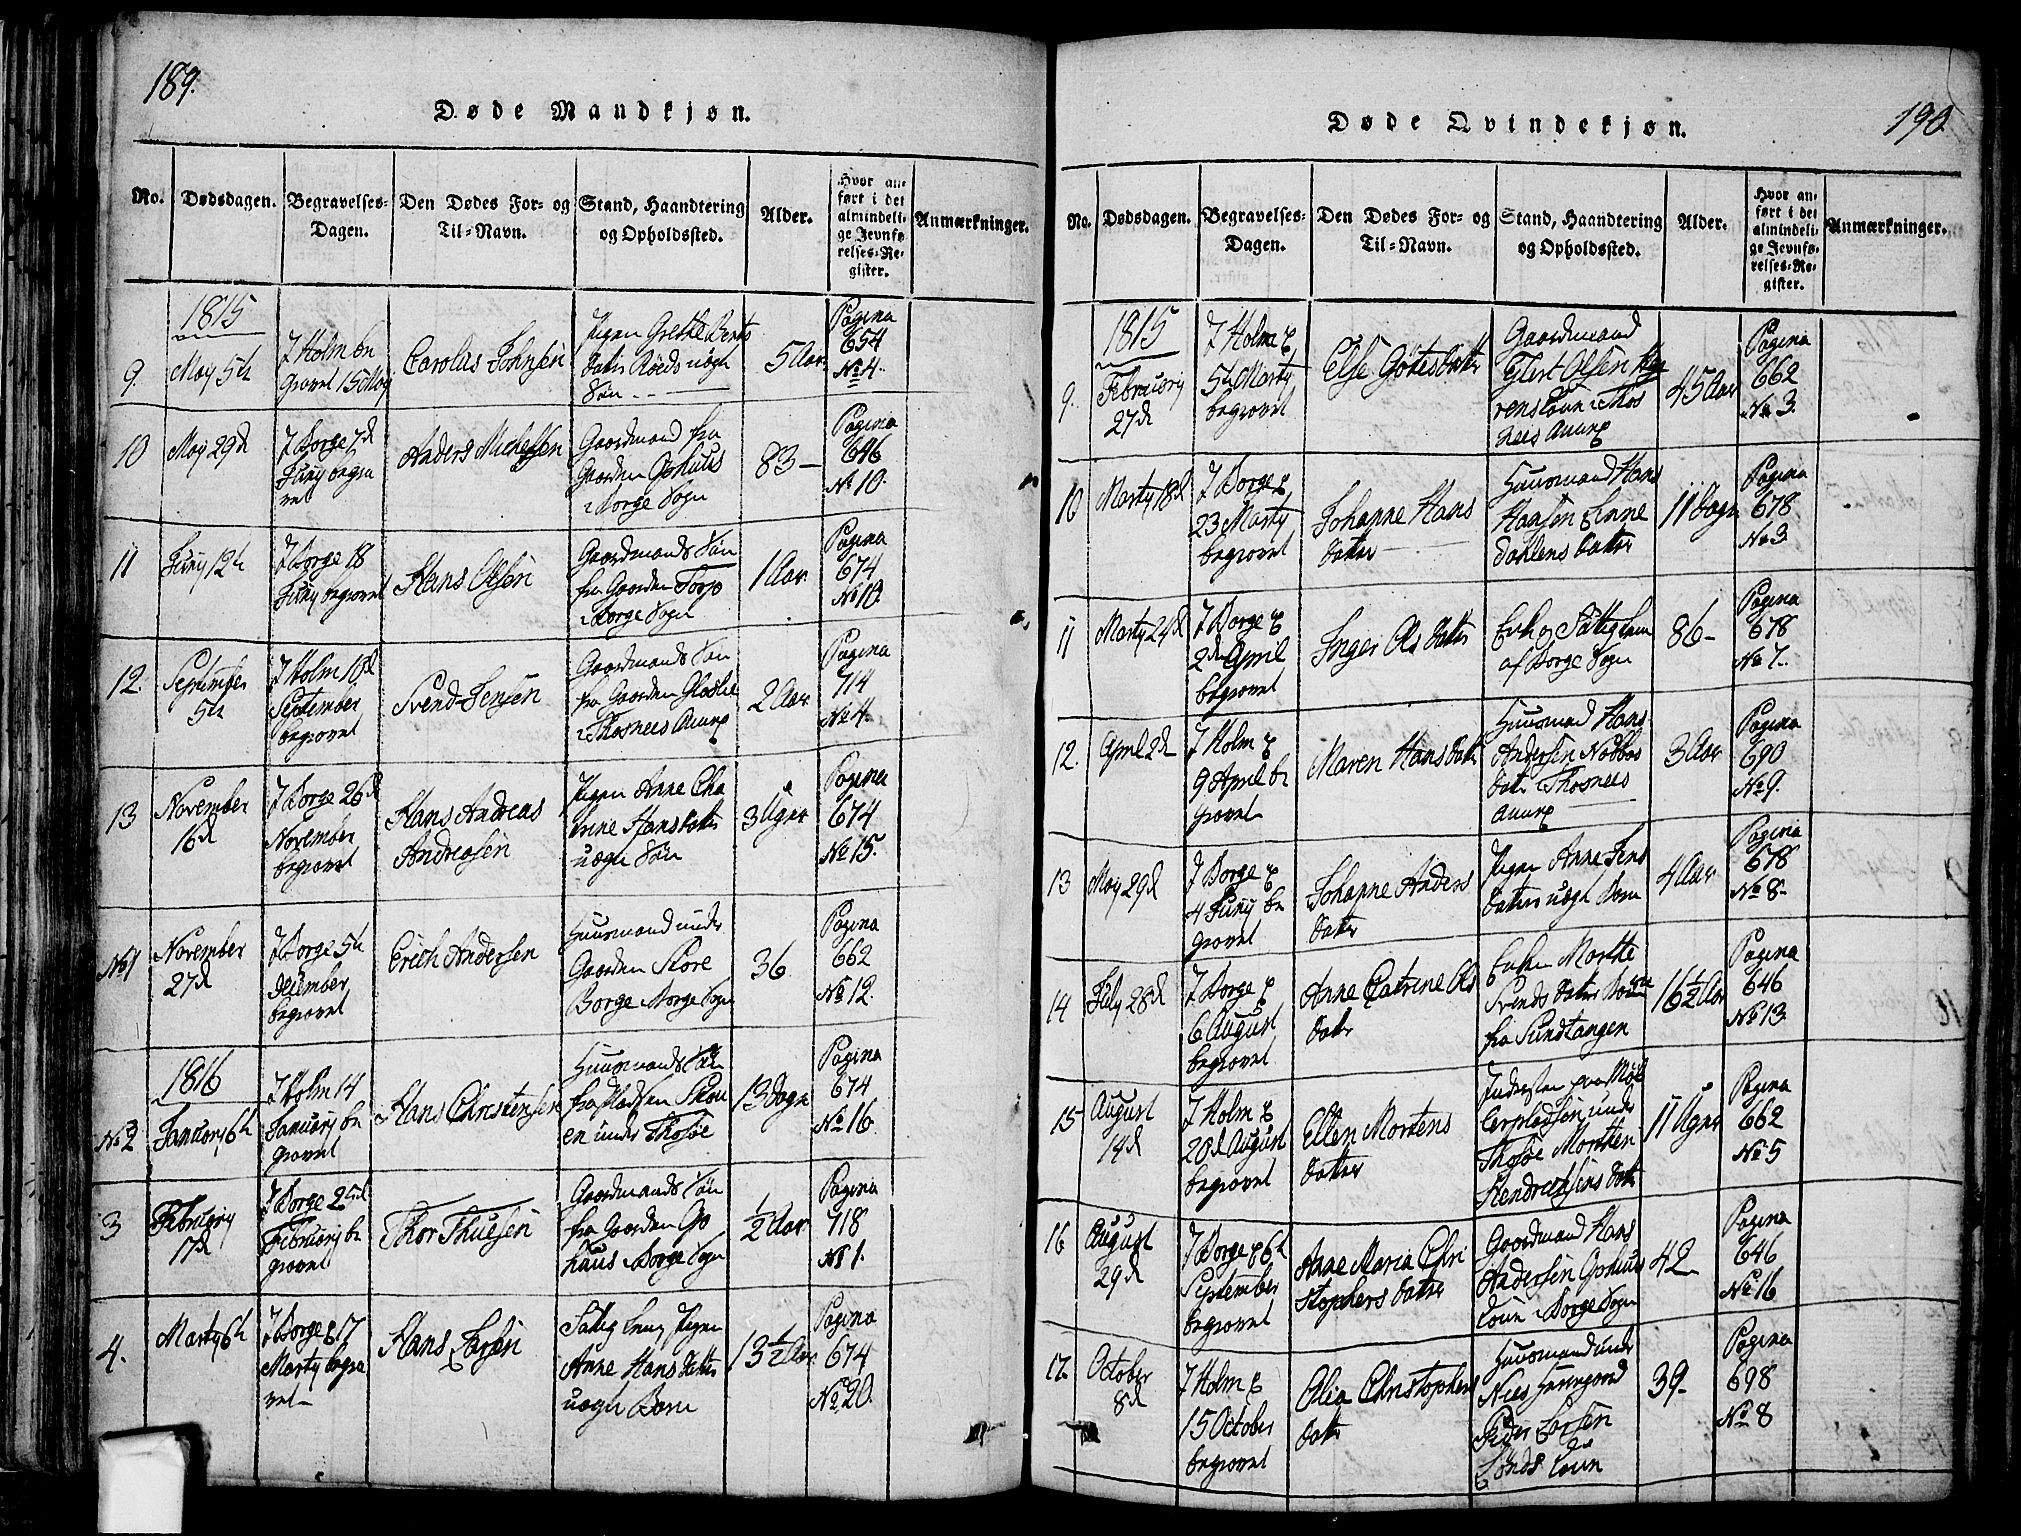 189.
Døde Mandkjøn.
No.
Dødsdagen.
Begravelses-
Dagen.
Den Dødes For- og
Til-Navn.
Stand, Haandtering
og Opholdssted.
Alder.
Hvor an-
ført i det
almindeli-
ge Jevnfø-
relses-Re-
gister.
Anmærkninger.
1815
9.
May 5te
I Holm be
gravet 15 May
Carolus Johnsen
Pigen Grethe Bents
datter Röeds uægte
Sön
5 Aar
Pagina
654
No 4.
10
May 29d
I Borge 7d
Juny begra
vet
Anders Michelsen
Gaardmand fra
Gaarden Ophuus
i Borge Sogn
83 –
Pagina
646
No 10.
11
Juny 12te
I Borge 18
Juny begravet
Hans Olsen
Gaardmands Sön
fra Gaarden Torp
i Borge Sogn
1 Aar
Pagina
674
No 10.
12.
September
5te
I Holm 10d
September
begravet
Svend Jensen
Gaardmands Sön
fra Gaarden
i Thosnees Annex
2 Aar
Pagina
714
No 4.
13
November
16d
I Borge 26d
November
begravet
Hans Andreas
Andreasen
Pigen Anne Cha
trine Hansdatter
uægte Sön
3 Uger
Pagina
674
No 15.
No 1
November
27d
I Borge 5te
December
begravet
Erich Andersen
Huusmand under
Gaarden Store
Borge i Borge Sogn
36
Pagina
662
No 12.
1816
No 2
January 6te
I Holm 14
January be
gravet
Hans Christensen
Huusmands Sön
fra Pladsen Skou
en under Thosöe
13 Dage
Pagina
674
No 16.
3
February
17d
I Borge 25d
February be
gravet
Thor Thuesen
Gaardmands Sön
fra Gaarden Op
huus i Borge Sogn
½ Aar
Pagina
718
No 1.
4.
Marty 6te
I Borge d 17
Marty begra
vet
Hans Larsen
Fattig Lem, Pigen
Anne Hansdatters
uægte Barn
13½ Aar
Pagina
674
No 20.
190.
Døde Qvindekjøn.
No.
Dødsdagen.
Begravelses-
Dagen.
Den Dødes For- og
Til-Navn.
Stand, Haandtering
og Opholdssted.
Alder.
Hvor an-
ført i det
almindeli-
ge Jevnfø-
relses-Re-
gister.
Anmærkninger.
1815
9.
February
27d
I Holm d
5te Marty
begravet
Else Götesdatter
Gaardmand
Elert Olsen
rens Kone i Thos
nees Annex
45 Aar
Pagina
662
No 3.
10
Marty 18d
I Borge d
23 Marty
begravet
Johanne Hans
datter
Huusmand Hans
Hansen Enne
dahlens datter
11 Dage
Pagina
678
No 3
11
Marty 24d
I Borge d
2den April
begravet
Inger Olsdatter
Enke og Fattiglem
af Borge Sogn
86 –
Pagina
678
No 7.
12.
April 2d
I Holm d
9 April be
gravet
Maren Hansdatter
Huusmand Hans
Andersen Nabbes
datter Thosnees
Annex
3 Aar
Pagina
690
No 9.
13
May 29d
I Borge d
4 Juny be
gravet
Johanne Anders
datter
Pigen Anne Jens
datters uægte Barn
4 Aar
Pagina
678
No 8.
14
July 28d
I Borge d
6 August
begravet
Anne Catrine Ols
datter
Enken Marthe
Svendsdatters
fra Sundtangen
16½ Aar
Pagina
646
No 13.
15
August
14d
I Holm d
20d August
begravet
Ellen Mortens
datter
Inderster paa
under
Thosöe Morthen
Hendrichsens datter
11 Uger
Pagina
662
No 5
16
August
29d
I Borge d 6te
September
begravet
Anne Maria Chri
stophersdatter
Gaardmand Hans
Andersen Ophuus
Kone i Borge Sogn
42
Pagina
646
No 16
17.
October
8d
I Holm d
15 October
begravet
Olia Christophers
datter
Huusmand under
Nees Herregaard
Peder Larsen
Kone
39 –
Pagina
698
No 8